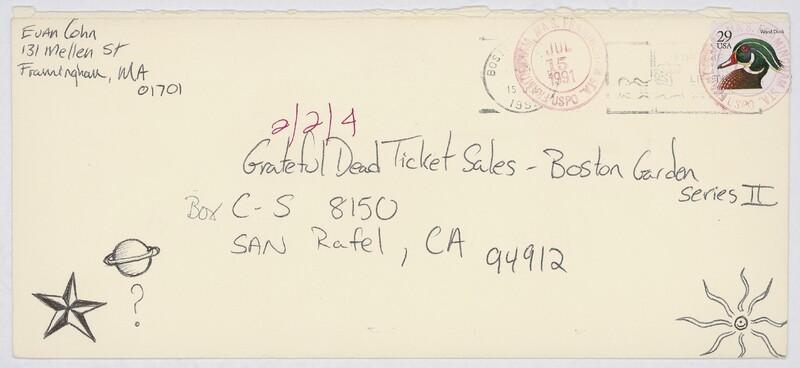 Evan Cohn
131 Mellen St
Framingham, MA
01701
BOS
15
199
FRAMINGHAM, MA
JUL
15
1991
USPO
29
USA
Wood Duck
2/2/4
Grateful Dead Ticket Sales - Boston Garden
series II
Box C-S 8150
SAN Rafel, CA 94912
?